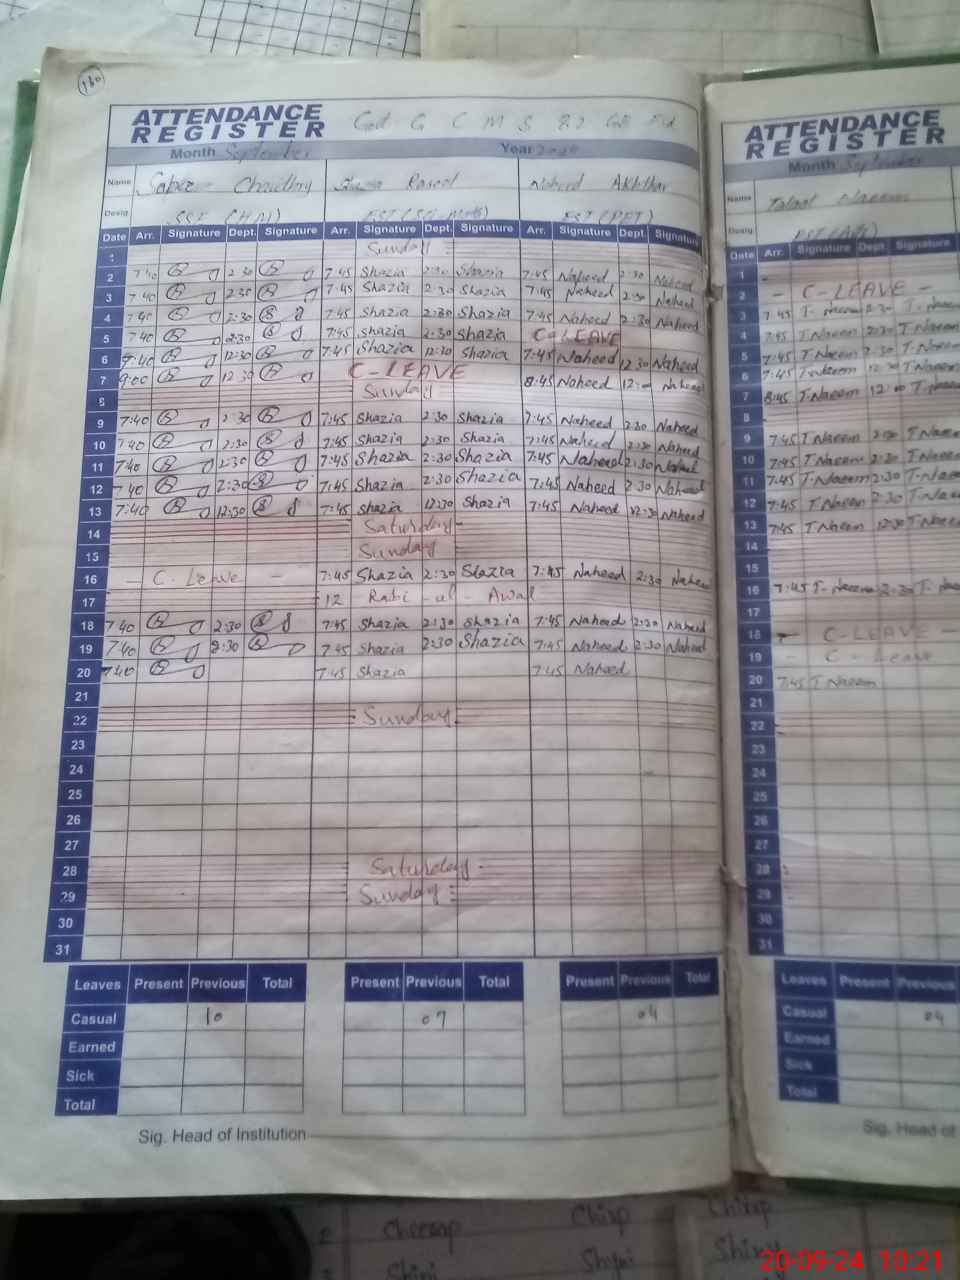 130
ATTENDANCE REGISTER
G C M S
Month September Year
Name Chaudhry Shazia Rasool Naheed Akhthar
Desig. SST (H/M) EST (Sci-Math) EST (PET)
Date Arr. Signature Dept. Signature Arr. Signature Dept. Signature Arr. Signature Dept. Signature
1 Sunday
2 7:40 2:30 7:45 Shazia 2:30 Shazia 7:45 Naheed 2:30 Naheed
3 7:40 2:30 7:45 Shazia 2:30 Shazia 7:45 Naheed 2:30 Naheed
4 7:40 2:30 7:45 Shazia 2:30 Shazia 7:45 Naheed 2:30 Naheed
5 7:40 2:30 7:45 Shazia 2:30 Shazia C-LEAVE
6 7:40 12:30 7:45 Shazia 12:30 Shazia 7:45 Naheed 12:30 Naheed
7 9:00 12:30 C-LEAVE 8:45 Naheed 12:00 Naheed
8 Sunday
9 7:40 2:30 7:45 Shazia 2:30 Shazia 7:45 Naheed 2:30 Naheed
10 7:40 2:30 7:45 Shazia 2:30 Shazia 7:45 Naheed 2:30 Naheed
11 7:40 2:30 7:45 Shazia 2:30 Shazia 7:45 Naheed 2:30 Naheed
12 7:40 2:30 7:45 Shazia 2:30 Shazia 7:45 Naheed 2:30 Naheed
13 7:40 12:30 7:45 Shazia 12:30 Shazia 7:45 Naheed 12:30 Naheed
14 Saturday
15 Sunday
16 - C. Leave - 7:45 Shazia 2:30 Shazia 7:45 Naheed 2:30 Naheed
17 12 Rabi-ul-Awal
18 7:40 2:30 7:45 Shazia 2:30 Shazia 7:45 Naheed 2:30 Naheed
19 7:40 2:30 7:45 Shazia 2:30 Shazia 7:45 Naheed 2:30 Naheed
20 7:40 7:45 Shazia 7:45 Naheed
21
22 Sunday
23
24
25
26
27
28 Saturday
29 Sunday
30
31
Leaves Present Previous Total Present Previous Total Present Previous Total
Casual 10 07 04
Earned
Sick
Total
Sig. Head of Institution
ATTENDANCE REGISTER
Month September
Name Talaat Naeem
Desig.
Date Arr. Signature Dept. Signature
1
2 - C-LEAVE -
3 7:45 T-Naeem 2:30 T-Naeem
4 7:45 T Naeem 2:30 T Naeem
5 7:45 T Naeem 2:30 T Naeem
6 7:45 T.Naeem 12:30 T Naeem
7 8:45 T.Naeem 12:00 T.Naeem
8
9 7:45 T Naeem 2:30 T Naeem
10 7:45 T Naeem 2:30 T Naeem
11 7:45 T.Naeem 2:30 T.Naeem
12 7:45 T Naeem 2:30 T Naeem
13 7:45 T Naeem 12:30 T Naeem
14
15
16 7:45 T-Naeem 2:30 T-Naeem
17
18 - C-LEAVE
19 C Leave
20 7:45 T Naeem
21
22
23
24
25
26
27
28
29
30
31
Leaves Present Previous
Casual 04
Earned
Sick
Total
Sig. Head of
Chirp Chirp
Shiny
20-09-24 10:21